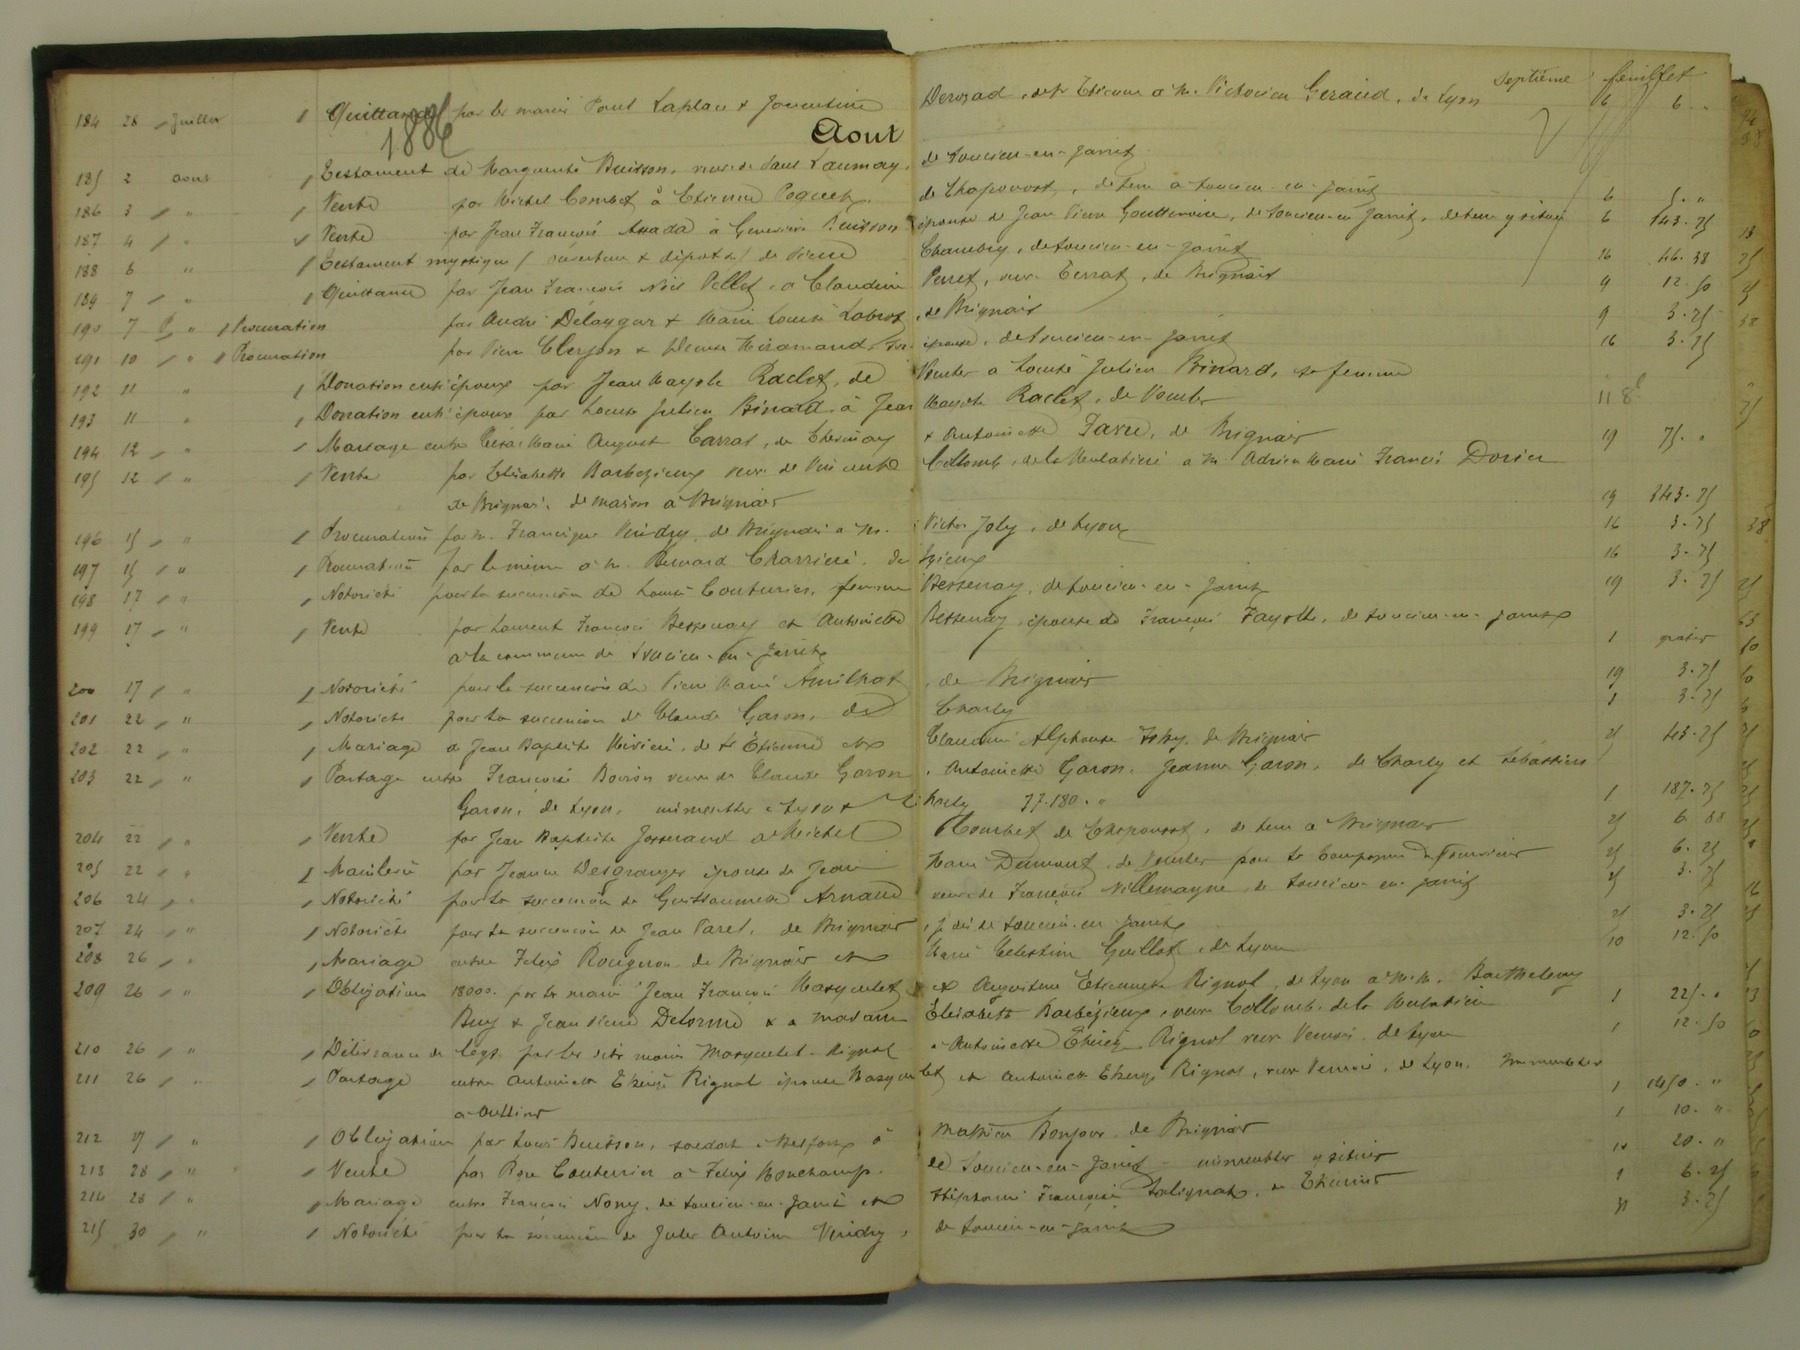 Septième feuillet
184 28 " Juillet / Quittance par les mariés Paul Laplace & Jorentine Derozad, de St Etienne à M. Victorien Geraud, de Lyon 6 6 "
1886
Aout
185 2 aout / Testament de Marguerite Buisson, veuve de Paul Laumay, de Soucieu-en-Jarret
186 3 " / Vente par Michel Combet à Etienne Poquet, de Chaponost, de terre à Soucieu-en-Jarret 6 5 "
187 4 " Vente par Jean François à Buisson épouse de Jean Pierre Goutteroire, de Soucieu-en-Jarret, de terre y située 6 143.75
188 6 " / Testament mystique / ouverture & dépot du / de Pierre Chambry, de Soucieu-en-Jarret 16 46.38
189 7 " / Quittance par Jean François Noël Pellet, à Claudine Perret, veuve Terrat, de Brignais 9 12.50
190 7 " / Procuration par André Delaygar & Marie Louise Labrot, de Brignais 9 3.75
191 10 " / Procuration par Pierre Clerjon & Miramand, son épouse, de Soucieu-en-Jarret 16 3.75
192 11 " / Donation entre époux par Jean Mayste Raclet, de Vourles à Louise Julien Binard, sa femme
193 11 " / Donation entre époux par Louise Julien Binard à Jean Mayste Raclet, de Vourles
194 12 " / Mariage entre César Marie August Carras, de & Antoinette Favre, de Brignais 19 75 "
195 12 " / Vente par Elisabeth Barbezieux veuve de Vincent Collomb, de la Mulatière à M. Adrien Marie Francis Dorier
de Brignais, de maison à Brignais 19 343.75
196 15 " / Procuration par M. Francisque Vindry, de Brignais à M. Victor Joly, de Lyon 16 3.75
197 15 " / Procuration par le même à M. Bernard Charrière, de 16 3.75
198 17 " / Notoriété pour la succession de Louise Couturier, femme Bessenay, de Soucieu-en-Jarret 19 3.75
199 17 " / Vente par Laurent François Bessenay et Antoinette Bessenay, épouse de François Fayolle, de Soucieu-en-Jarret
à la commune de Soucieu-en-Jarret 1 gratis
200 17 " / Notoriété pour la succession de Pierre Marie Amilhat, de Brignais 19 3.75
201 22 " / Notoriété pour la succession de Claude Garon, de Charly 1 3.75
202 22 " / Mariage de Jean Baptiste Rivière, de St Etienne et Claudine Alphonse de Brignais 25 43.75
203 22 " / Partage entre Françoise Boiron veuve de Claude Garon, Antoinette Garon, Jeanne Garon, de Charly et Sébastien
Garon, de Lyon, immeubles à Lyon & Charly 77.180 " 1 187.75
204 22 " / Vente par Jean Baptiste Josserand à Michel Combet de Chaponost, de terre à Brignais 25 6.88
205 22 " / Mainlevée par Jeanne Desgranges épouse de Jean Marie Dumont, de Vourles pour la Compagnie de Fourvière 25 6.25
206 24 " / Notoriété pour la succession de Guillaume Arnaud veuve de François Villemagne, de Soucieu-en-Jarret 25 3.75
207 24 " / Notoriété pour la succession de Jean Paret, de Brignais, de Soucieu-en-Jarret 25 3.75
208 26 " / Mariage entre Félix Rougeron de Brignais et Marie Célestine Guillot, de Lyon 10 12.50
209 26 " / Obligation 18000 par les mariés Jean François Masquelet et Augustine Etiennette Rignol, de Lyon à M.M. Barthelemy
Buy & Jean Pierre Delorme & à madame Elisabeth Barbezieux, veuve Collomb, de la Mulatière 1 225 "
210 26 " / Délivrance de legs par les dits mariés Masquelet-Rignol à Antoinette Rignol veuve de Lyon 1 12.50
211 26 " / Partage entre Antoinette Rignol épouse Masquelet et Antoinette Rignol, veuve de Lyon, immeubles
à Oullins 1 1450 "
212 27 " / Obligation par Louis Buisson, soldat à Belfort à Mathieu Bonjour, de Brignais 1 10 "
213 28 " / Vente par Rose Couturier à Félix Bonchamp, de Soucieu-en-Jarret immeubles y situés 20 "
214 28 " / Mariage entre François Nony, de Soucieu-en-Jarret et Stéphanie Françoise de Thurins 1 6.25
215 30 " / Notoriété pour la succession de Jules Antoine Vindry, de Soucieu-en-Jarret 3.75